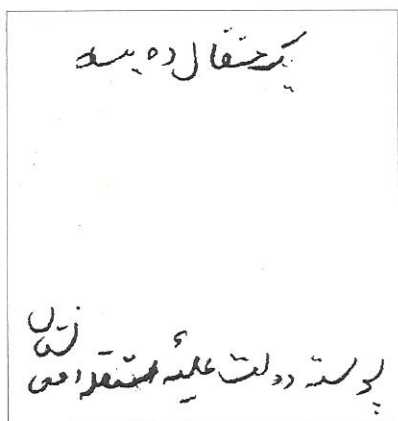 یک مثقال ده پیسه
پوسته دولت علیهٔ مستقله افغانستان